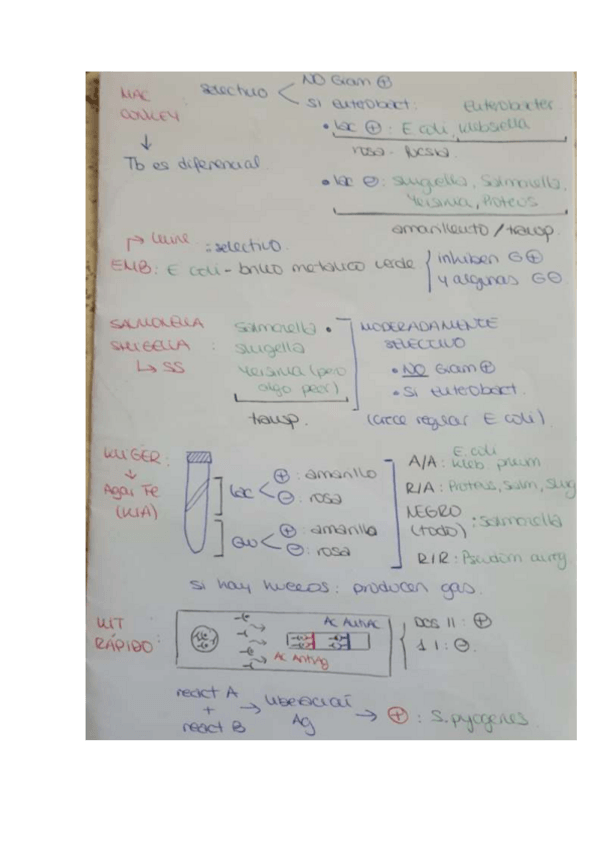 MAC CONKEY
↓
Tb es diferencial
selectivo < NO Gram ⊕
Si enterobact: Enterobacter
• lac ⊕: E coli, klebsiella
rosa - fucsia
• lac ⊖: shigella, Salmonella,
Yersinia, Proteus
amarillento / transp.
: selectivo.
EMB: E coli - brillo metálico verde { inhiben G⊕
y algunas G⊖
SALMONELLA
SHIGELLA :
↳ SS
Salmonella •
shigella
Yersinia (pero
algo peor)
transp.
MODERADAMENTE
SELECTIVO
• NO Gram ⊕
• Si enterobact.
(crece regular E coli)
KLIGER:
↓
Agar Fe
(KIA)
lac < ⊕ : amarillo
⊖ : rosa
Glu < ⊕ : amarillo
⊖ : rosa
A/A: E. coli
kleb. pneum
R/A: Proteus, salm, shig
NEGRO
(todo) : Salmonella
R/R: Pseudom aurg
si hay huecos: producen gas.
KIT
RÁPIDO:
AC AntiAC
AC AntiAg
DOS II : ⊕
1 I : ⊖
react A
+
react B
→ liberar
Ag → ⊕ : S. pyogenes